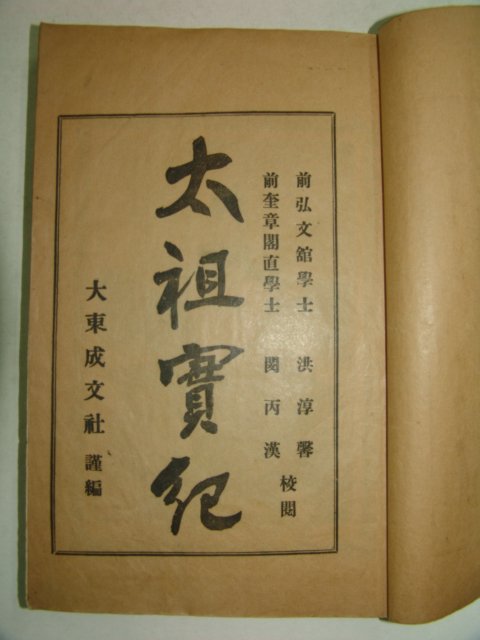 前弘文舘學士 洪淳馨
前奎章閣直學士 閔丙漢
校閱
太祖實紀
大東成文社 謹編